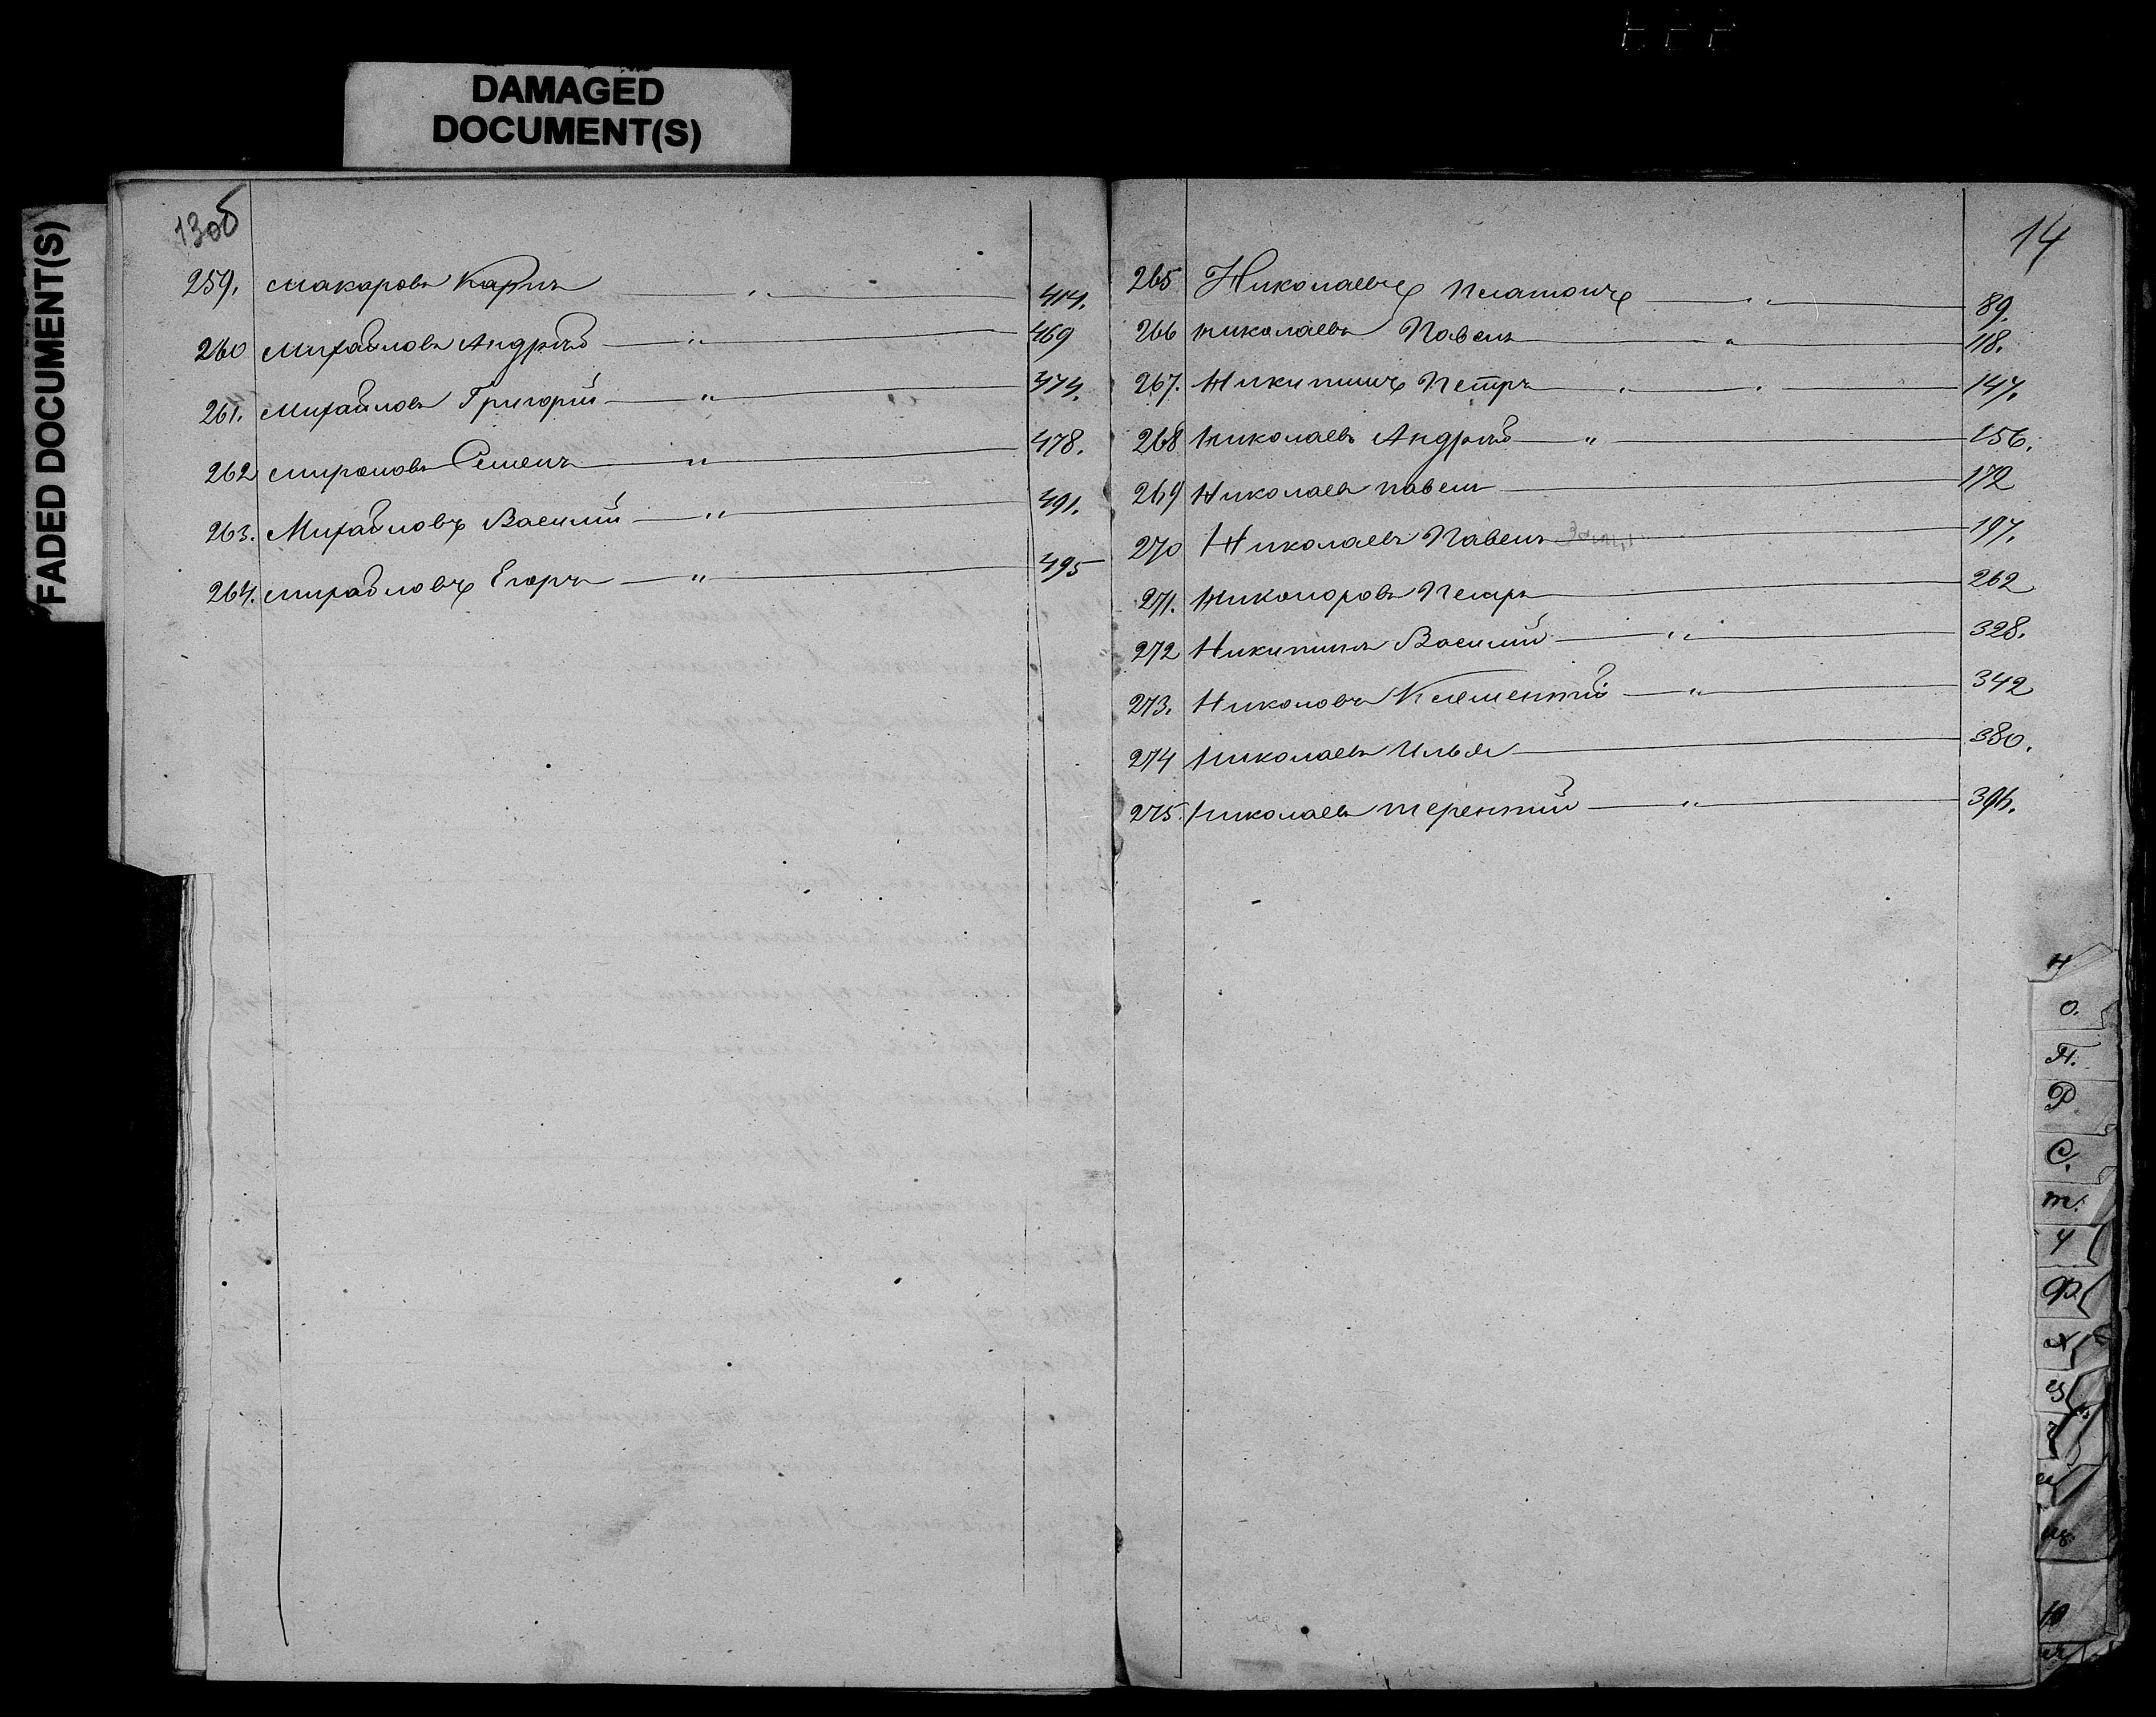 DAMAGED
DOCUMENT(S)
FADED DOCUMENT(S)
13об
259. Макаровъ Карпъ 414.
260 Михайловъ Андрей 469
261. Михайловъ Григорій 474.
262 Мироновъ Семенъ 478.
263. Михайловъ Василій 491.
264. Михайловъ Егоръ 495
14
265 Николаевъ Платонъ 89.
266 Николаевъ Павелъ 118.
267. Никитинъ Петръ 147.
268 Николаевъ Андрей 156.
269 Николаевъ Павелъ 172
270 Николаевъ Павелъ 197.
271. Никоноровъ Петръ 262
272 Никитинъ Василій 328.
273. Николовъ Клементій 342
274 Николаевъ Илья 380.
275. Николаевъ Терентій 396.
Н
О.
П.
Р
С.
Т.
У
Ф
Х
Ю